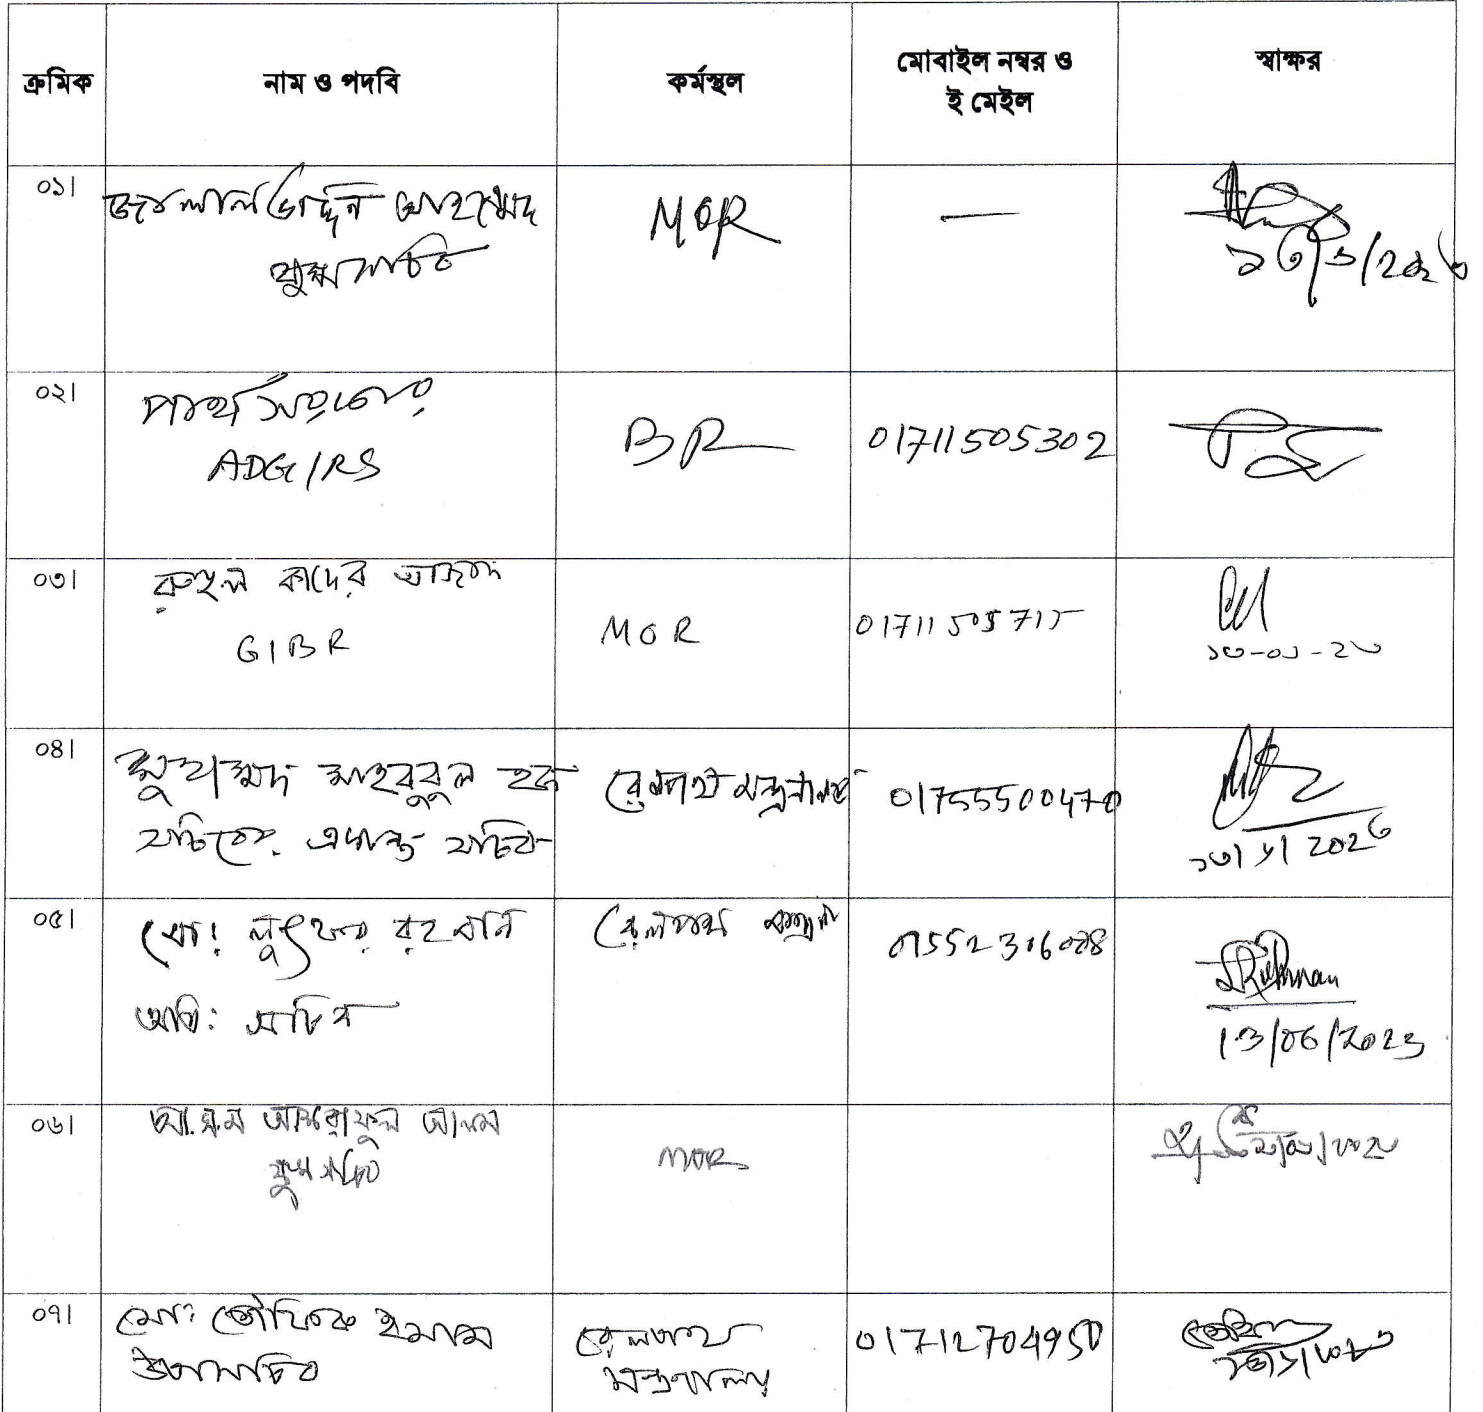 ক্রমিক
নাম ও পদবি
কর্মস্থল
মোবাইল নম্বর ও
ই মেইল
স্বাক্ষর
০১।
জালাল উদ্দিন আহম্মেদ
যুগ্মসচিব
MOR
—
০২।
পার্থ সরকার
ADG/RS
BR
01711505302
০৩।
রুহুল কাদের আজাদ
GIBR
MOR
01711505715
১৩-০১-২৬
০৪।
মুহাম্মদ মাহবুবুল হক
সচিবের একান্ত সচিব
রেলপথ মন্ত্রণালয়
01755500470
০৫।
মো: লুৎফর রহমান
অতি: সচিব
রেলপথ
MRahman
০৬।
আ.ন.ম আশরাফুল আলম
যুগ্মসচিব
MOR
০৭।
মো: তৌফিক ইমাম
উপসচিব
রেলপথ
মন্ত্রণালয়
01712704950